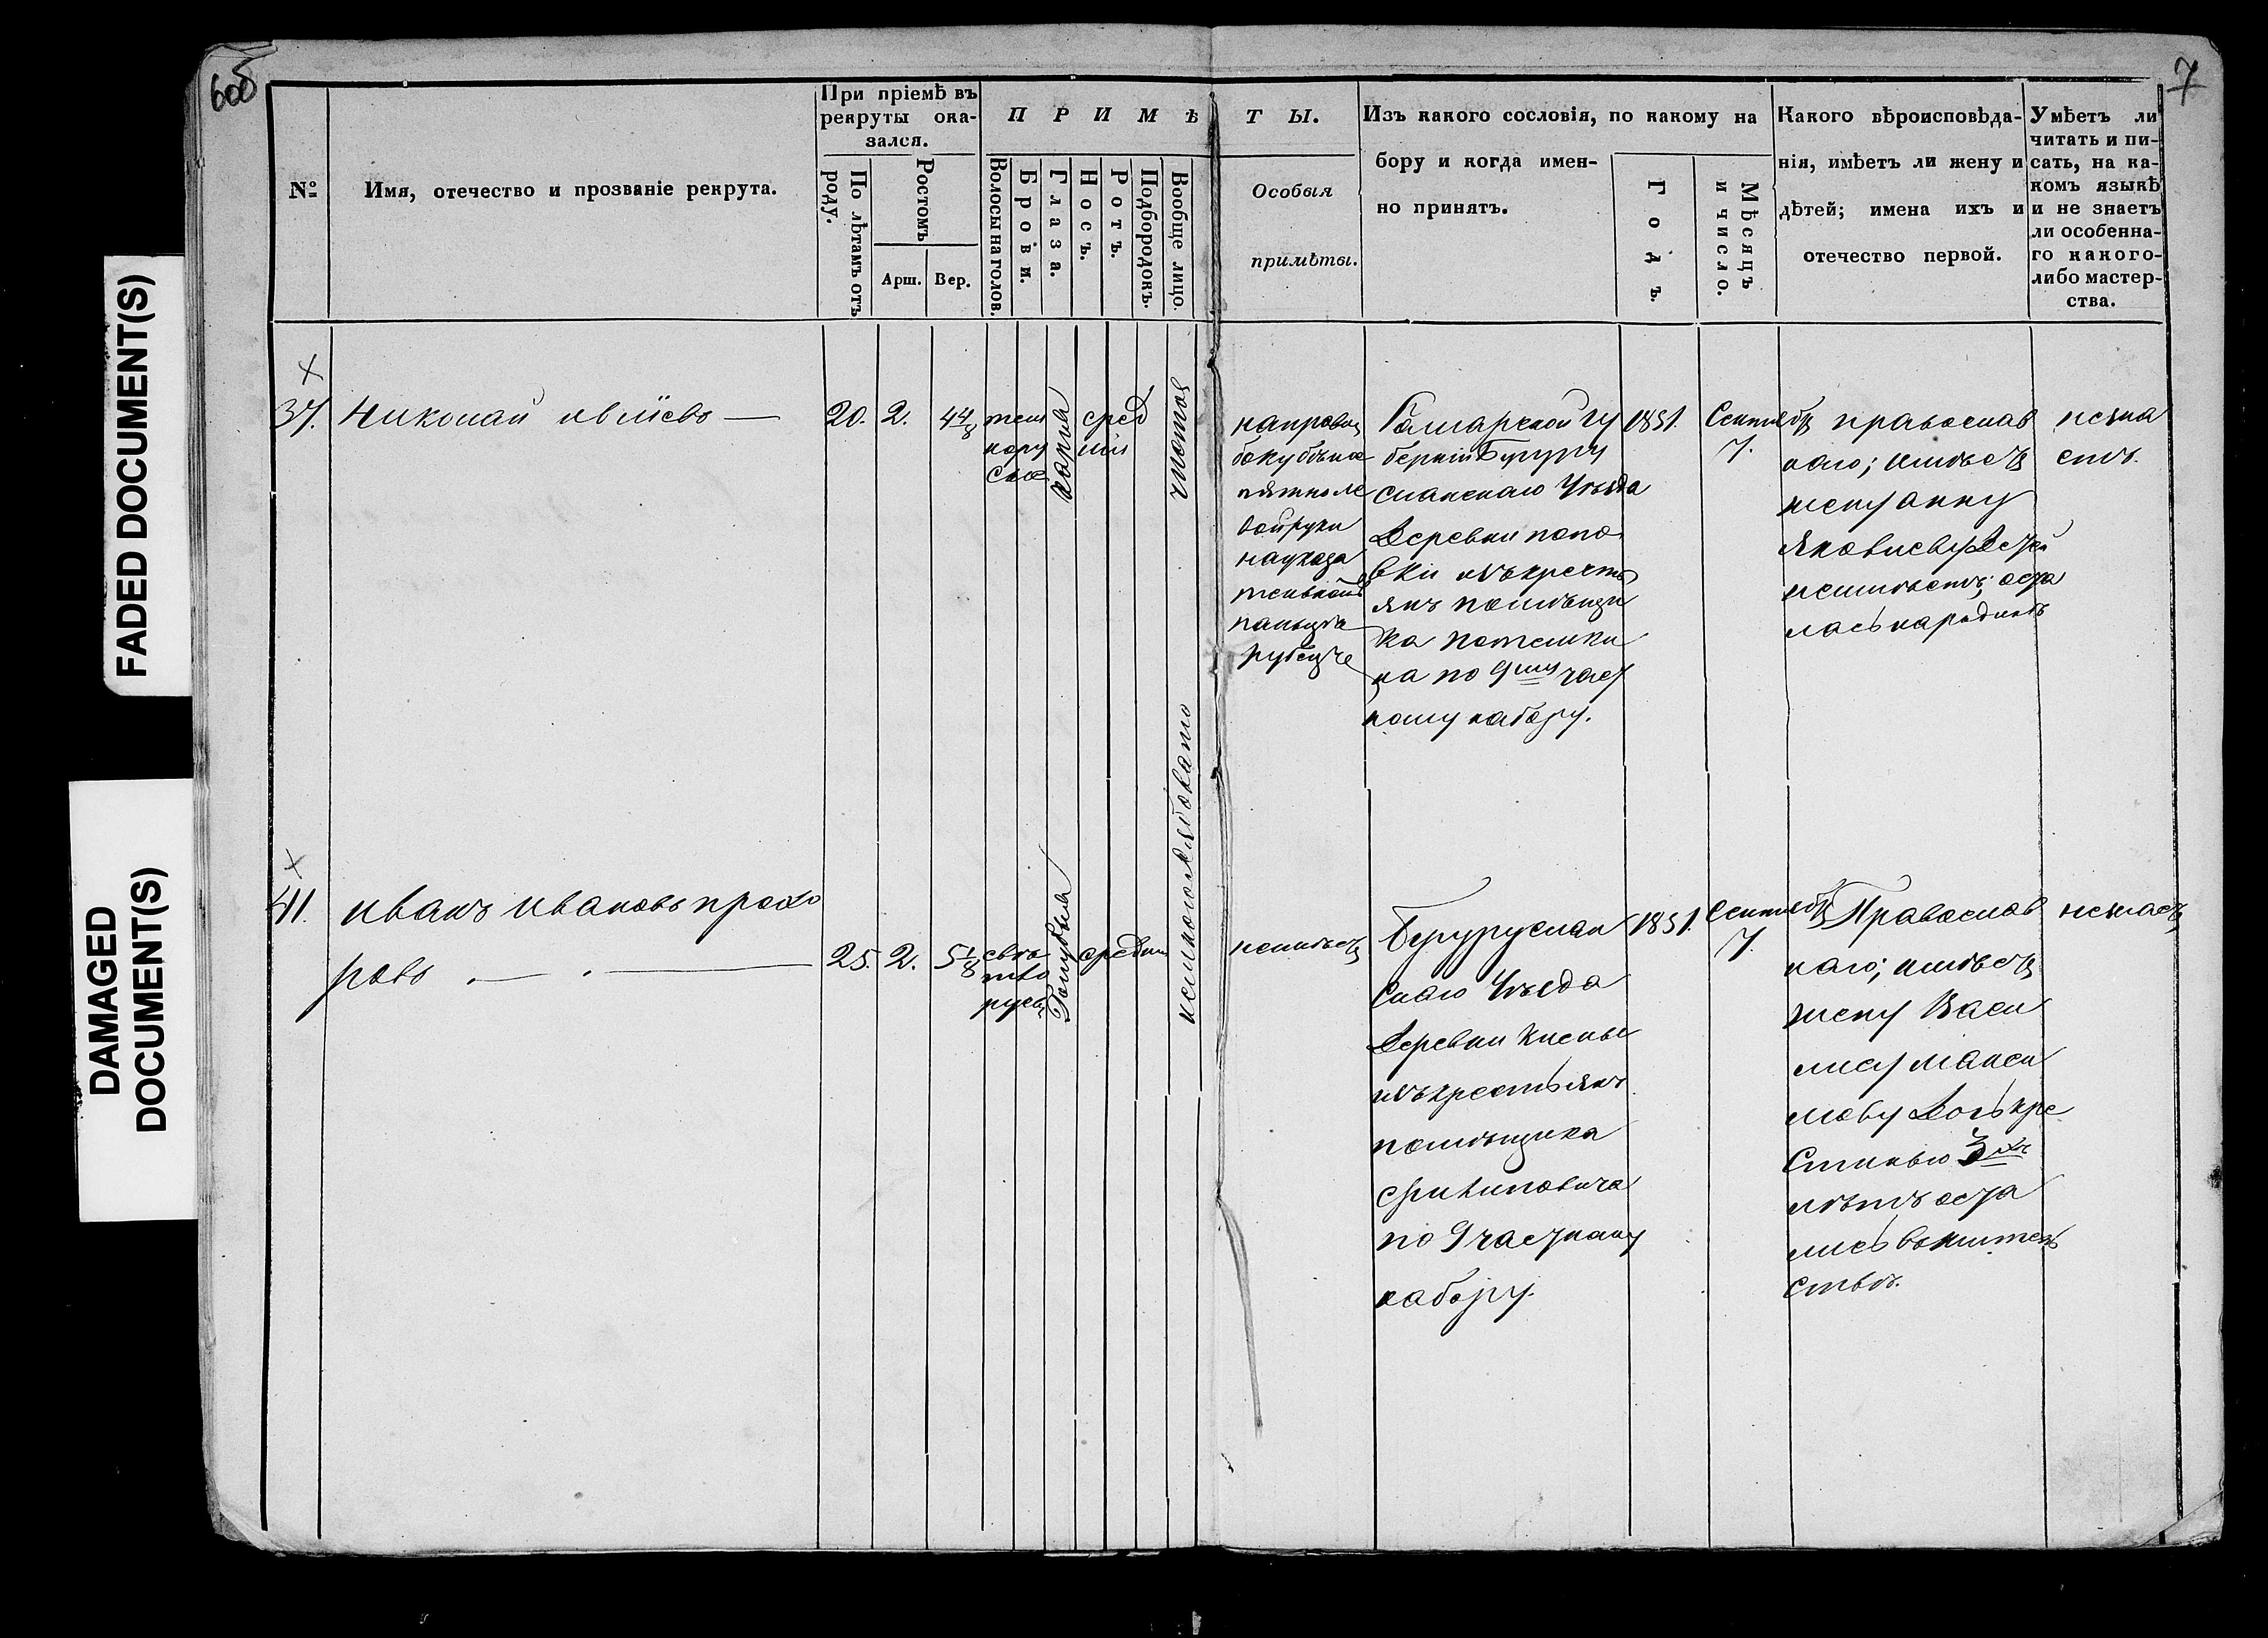 6об
7
FADED DOCUMENT(S)
DAMAGED
DOCUMENT(S)
№
Имя, отечество и прозваніе рекрута.
При пріемѣ въ
рекруты ока-
зался.
По лѣтамъ отъ
роду.
Ростомъ
Арш.
Вер.
ПРИМѢТЫ.
Волосы на голов.
Брови.
Глаза.
Носъ.
Ротъ.
Подбородокъ.
Вообще лицо.
Особыя
примѣты.
Изъ какого сословія, по какому на
бору и когда имен-
но принятъ.
Годъ.
Мѣсяцъ
и число.
Какого вѣроисповѣда-
нія, имѣетъ ли жену и
дѣтей; имена ихъ и
отечество первой.
Умѣетъ ли
читать и пи-
сать, на ка-
комъ языкѣ
и не знаетъ
ли особенна-
го какого-
либо мастер-
ства.
37.
Николай
20.
2.
4 4/8
тем
нору
сые
карія
сред
ній
чистое
на правом
боку
пятно ле
вой руки
на указа
тельномъ
пальце
рубецъ
Самарской гу
берніи Бугуру
сланскаго Уѣзда
Деревни Попо
вки изъ кресть
янъ помѣщи
ка Потемки
на по 9му част
ному набору.
1851.
Сентябр
7.
православ
наго; имѣетъ
жену Анну
Яковлеву Детей
неимѣетъ; оста
лась народинѣ
незна
етъ.
41.
Иванъ Ивановъ Прохо
ровъ
25.
2.
5 1/8
свѣ
тло
русы
Голубыя
средній
немного рябовато
неимѣетъ
Бугуруслан
скаго Уѣзда
Деревни
изъ крестьянъ
помѣщика
Филиповича
по 9 частному
набору.
1851.
Сентябр
7.
Православ
наго; имѣетъ
жену Васи
лису Макси
мову Дочь Хре
стинью 3хъ
лѣтъ оста
лись вжитель
ствѣ.
незнаетъ